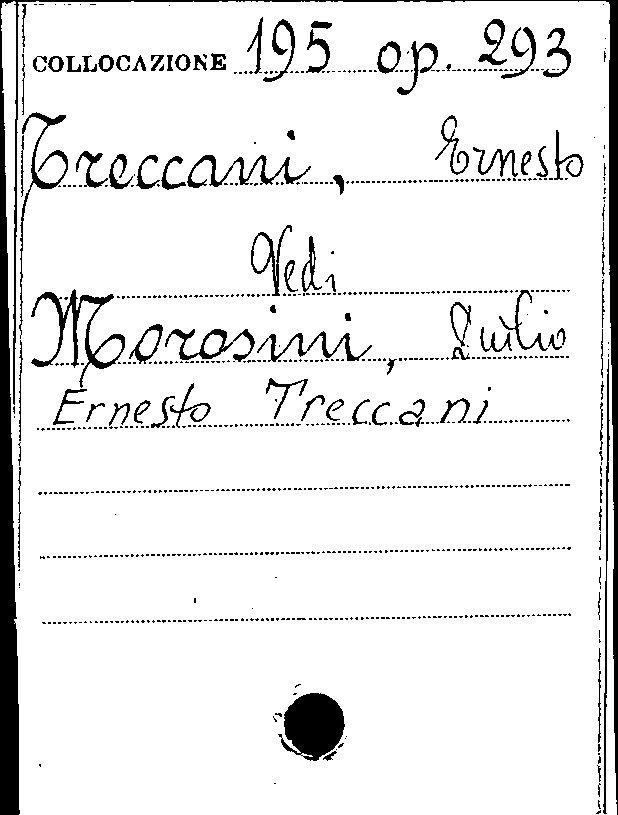 COLLOCAZIONE 195 op. 293
Treccani, Ernesto
Vedi
Morosini, Duilio
Ernesto Treccani